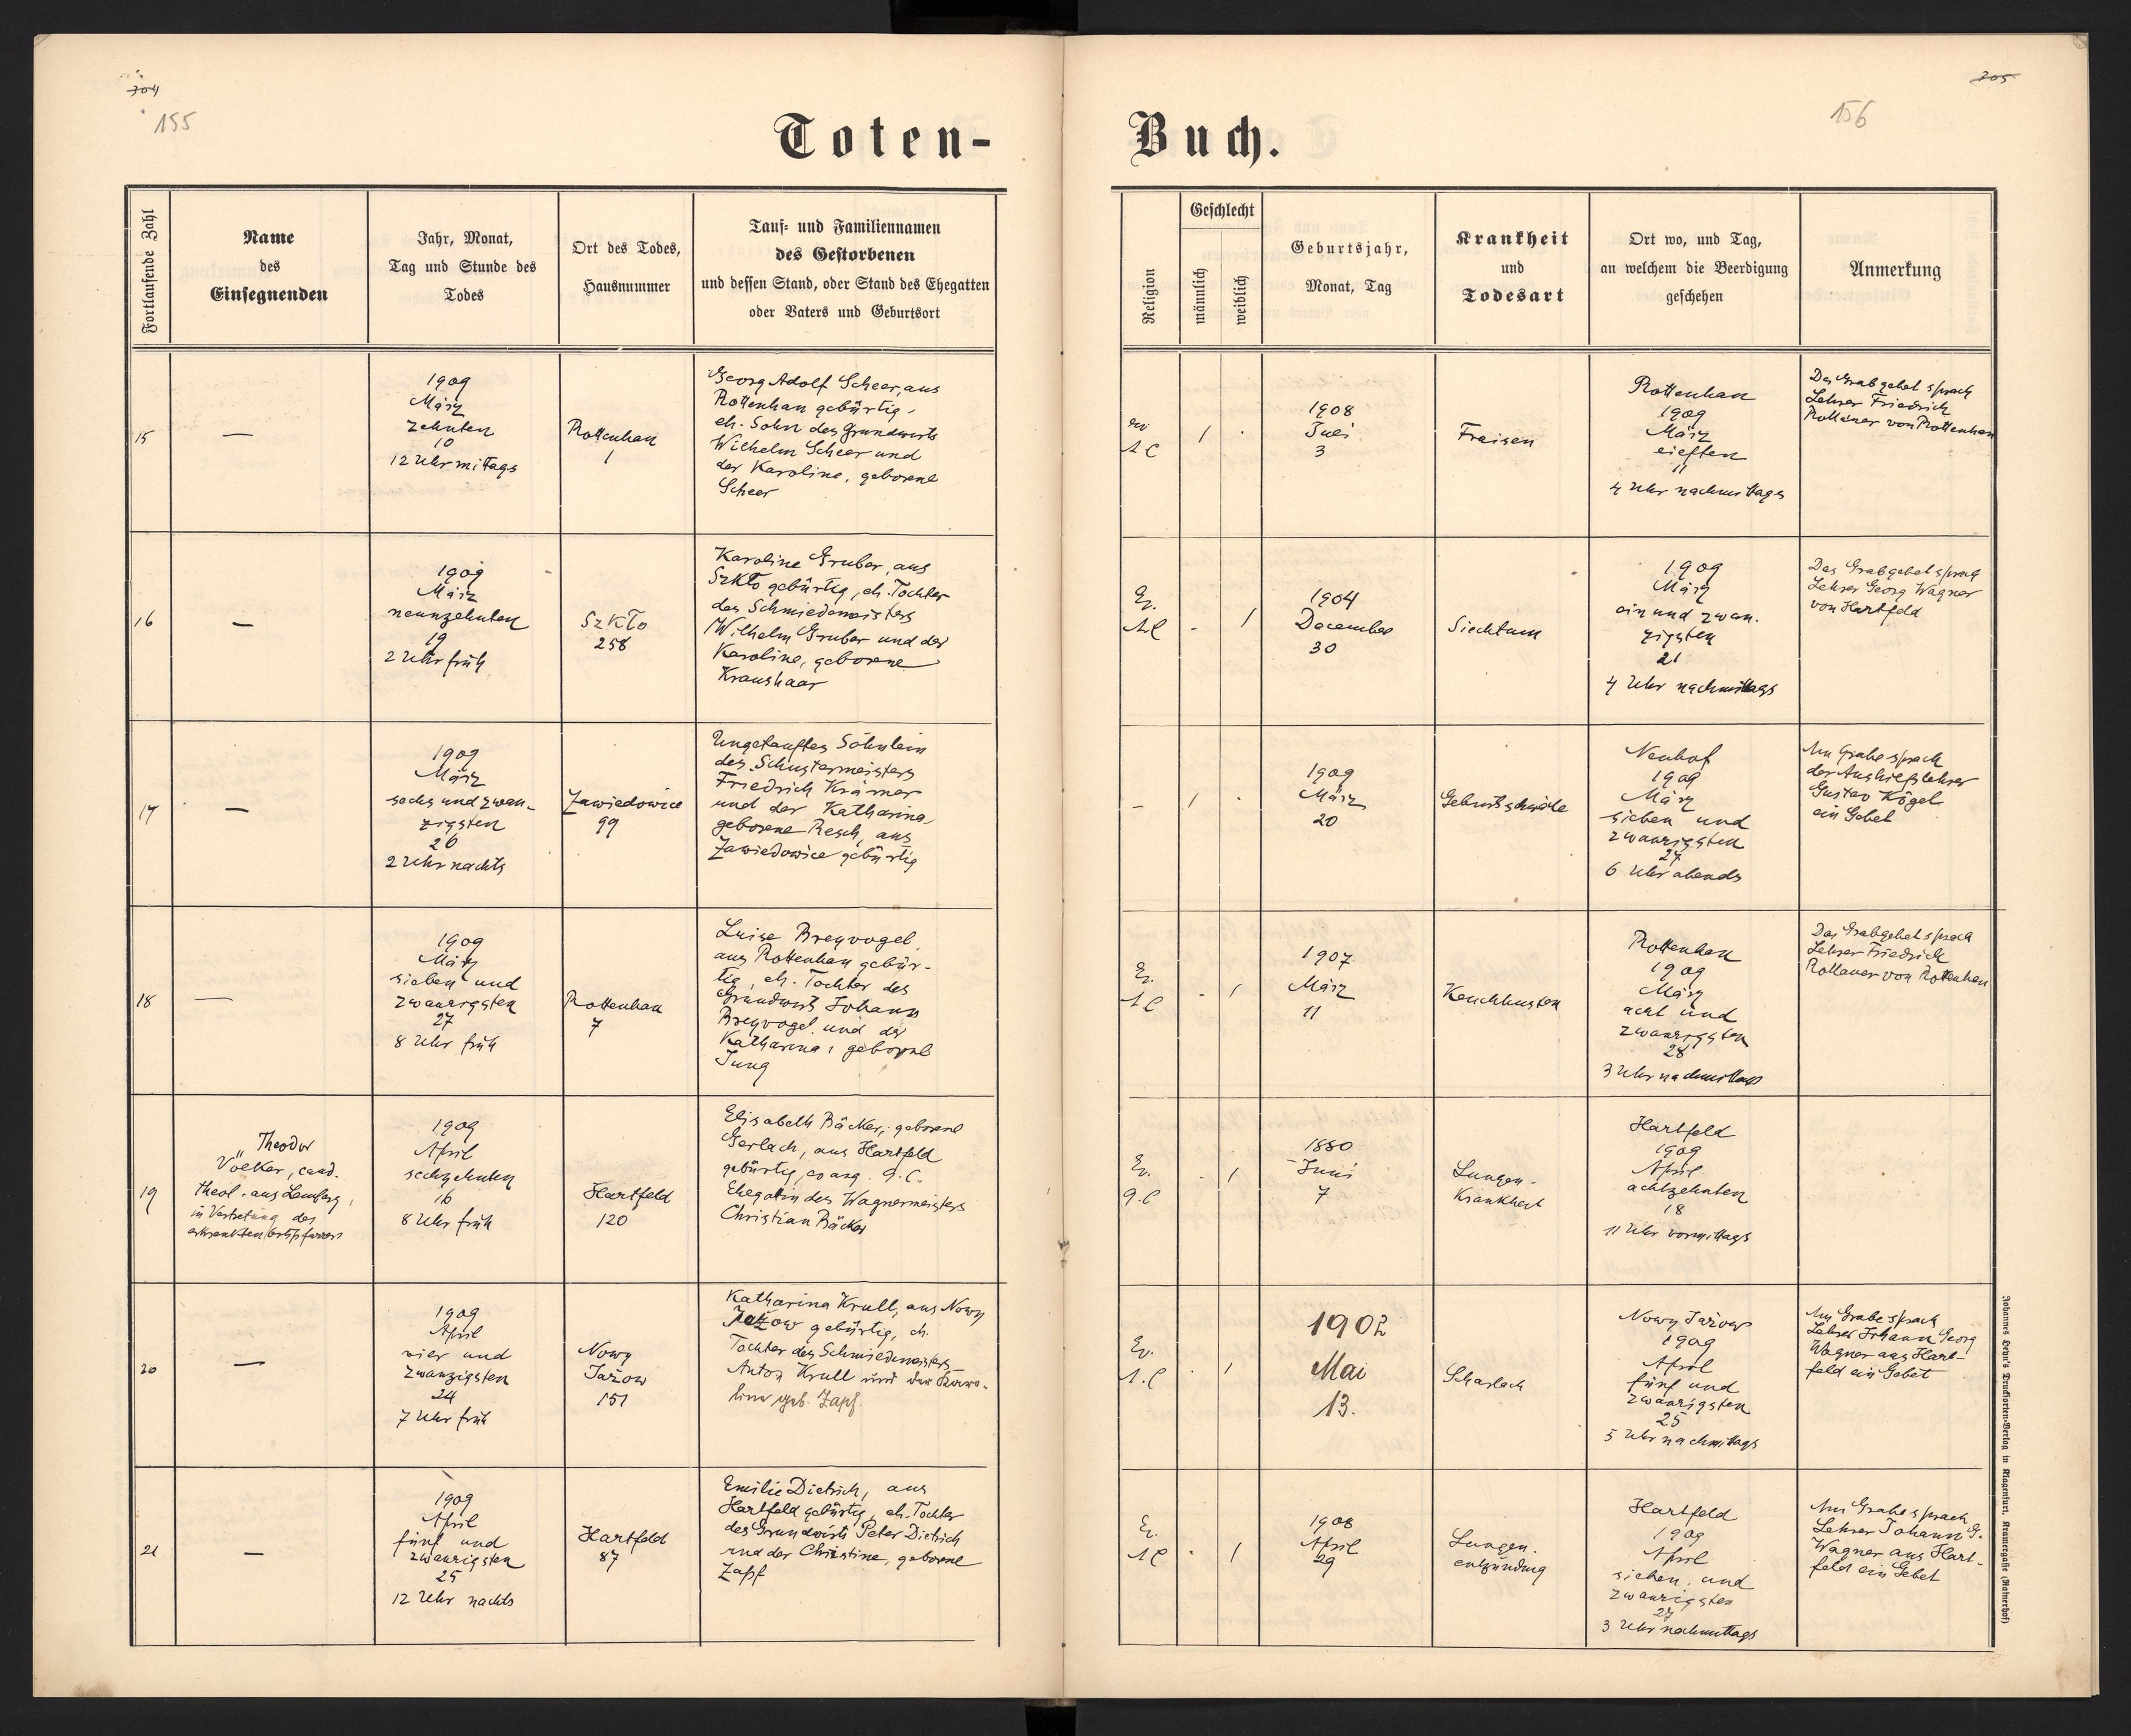 155
Toten-
Fortlaufende Zahl
Name
des
Einsegnenden
Jahr, Monat,
Tag und Stunde des
Todes
Ort des Todes,
Hausnummer
Tauf- und Familiennamen
des Gestorbenen
und dessen Stand, oder Stand des Ehegatten
oder Vaters und Geburtsort
15
—
1909
März
zehnten
10
12 Uhr mittags
Rottenhan
1
Georg Adolf Scheer, aus
Rottenhan gebürtig,
eh. Sohn des Grundwirts
Wilhelm Scheer und
der Karoline, geborene
Scheer
16
—
1909
März
neunzehnten
19
2 Uhr früh
Szkło
258
Karoline Gruber, aus
Szkło gebürtig, eh. Tochter
des Schmiedemeisters
Wilhelm Gruber und der
Karoline, geborene
Kraushaar
17
—
1909
März
sechs und zwan-
zigsten
26
2 Uhr nachts
Zawiedowice
99
Ungetauftes Söhnlein
des Schustermeisters
Friedrich Krämer
und der Katharina
geborene Resch, aus
Zawiedowice gebürtig
18
—
1909
März
sieben und
zwanzigsten
27
8 Uhr früh
Rottenhan
7
Luise Breyvogel,
aus Rottenhan gebür-
tig, eh. Tochter des
Grundwirts Johann
Breyvogel und der
Katharina, geborene
Jung
19
Theodor
Völker, cand.
theol. aus Lemberg,
in Vertretung des
erkrankten Ortspfarrers
1909
April
sechzehnten
16
8 Uhr früh
Hartfeld
120
Elisabeth Bäcker, geborene
Gerlach, aus Hartfeld
gebürtig, evang. 9. C.
Ehegattin des Wagnermeisters
Christian Bäcker
20
—
1909
April
vier und
zwanzigsten
24
7 Uhr früh
Nowy
Jażow
151
Katharina Krull, aus Nowy
Jażow gebürtig, eh.
Tochter des Schmiedmeisters
Anton Krull und der Karo-
line geb. Zapf.
21
—
1909
April
fünf und
zwanzigsten
25
12 Uhr nachts
Hartfeld
87
Emilie Dietrich, aus
Hartfeld gebürtig, eh. Tochter
des Grundwirts Peter Dietrich
und der Christine, geborene
Zapf
205
156
Buch.
Religion
Geschlecht
männlich
weiblich
Geburtsjahr,
Monat, Tag
Krankheit
und
Todesart
Ort wo, und Tag,
an welchem die Beerdigung
geschehen
Anmerkung
ev
A C
1
1908
Juli
3
Fraisen
Rottenhan
1909
März
elften
11
4 Uhr nachmittags
Das Grabgebet sprach
Lehrer Friedrich
Rollauer von Rottenhan
Ev.
A C
-
1
1904
December
30
Siechtum
1909
März
ein und zwan-
zigsten
21
4 Uhr nachmittags
Das Grabgebet sprach
Lehrer Georg Wagner
von Hartfeld
-
1
1909
März
20
Geburtsschwäche
Neuhof
1909
März
sieben und
zwanzigsten
27
6 Uhr abends
Am Grabe sprach
der Aushilfslehrer
Gustav Kögel
ein Gebet
Ev.
A C
-
1
1907
März
11
Keuchhusten
Rottenhan
1909
März
acht und
zwanzigsten
28
3 Uhr nachmittags
Das Grabgebet sprach
Lehrer Friedrich
Rollauer von Rottenhan
Ev.
9. C
1
1880
Juni
7
Lungen-
krankheit
Hartfeld
1909
April
achtzehnten
18
11 Uhr vormittags
Ev.
A. C
1
1902
Mai
13.
Scharlach
Nowy Jażow
1909
April
fünf und
zwanzigsten
25
5 Uhr nachmittags
Am Grabe sprach
Lehrer Johann Georg
Wagner aus Hart-
feld ein Gebet
Ev.
A C
1
1908
April
29
Lungen-
entzündung
Hartfeld
1909
April
sieben und
zwanzigsten
27
3 Uhr nachmittags
Am Grabe sprach
Lehrer Johann G.
Wagner aus Hart-
feld ein Gebet
Johannes Heyn's Drucksorten-Verlag in Klagenfurt, Kramergasse (Rainerhof)